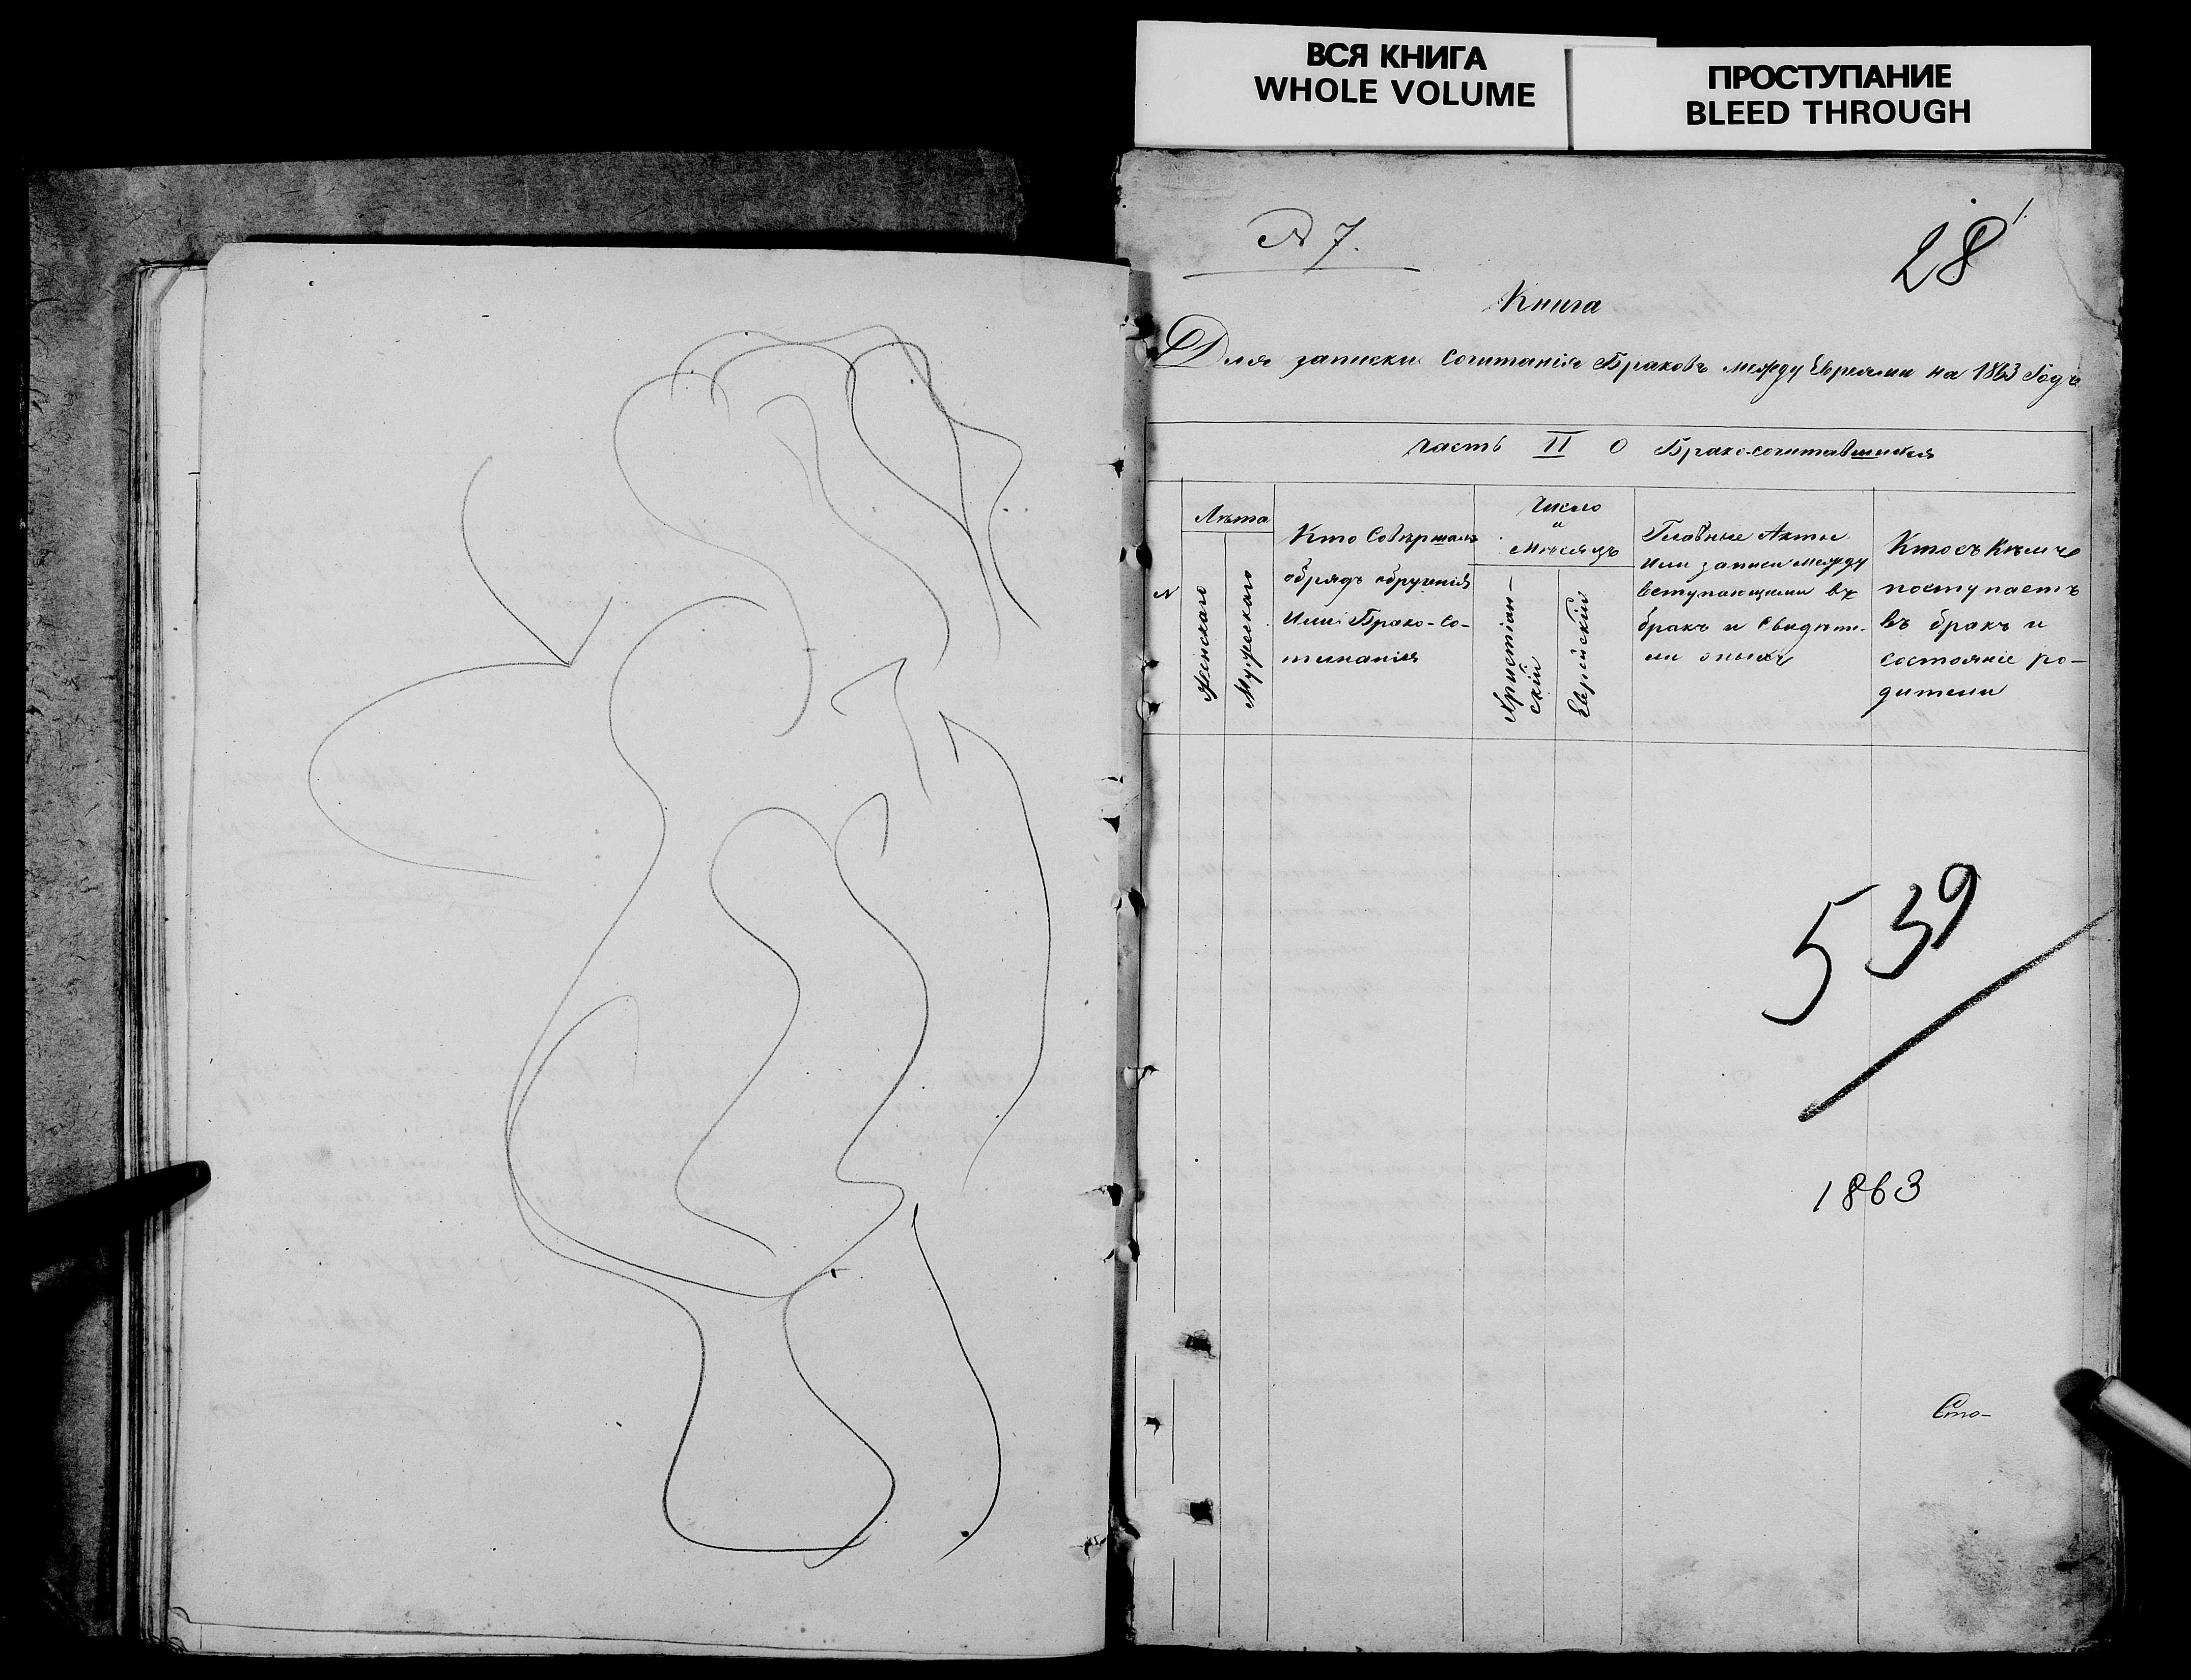 ВСЯ КНИГА
WHOLE VOLUME
ПРОСТУПАНИЕ
BLEED THROUGH
№ 7.
28
1.
Книга
Для записки Сочитанія Браковъ между Евреями на 1863 Годъ
Часть II О Брако-сочитавшихся
№
Лѣта
Женскаго
Мужескаго
Кто Совѣршалъ
обрядъ обрученія
Или Брако-со-
читанія
Число
и
Мѣсяцъ
Христіан-
скій
Еврейскій
Главные Акты
Или записи между
вступающими въ
бракъ и Свидѣте-
ли оныхъ
Кто съ Кѣмъ
поступаетъ
въ бракъ и
состояніе ро-
дители
539
1863
Сто-